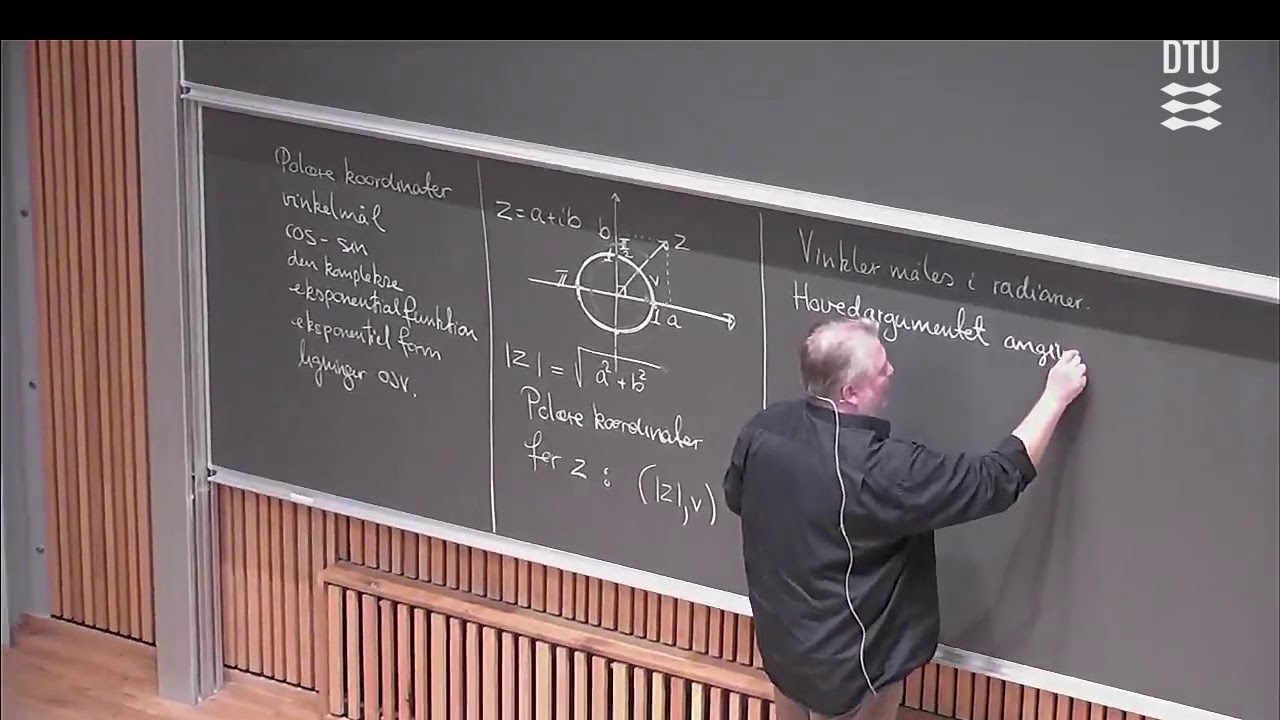 DTU
Polære koordinater
vinkelmål
cos - sin
den komplekse
eksponentialfunktion
eksponentiel form
ligninger osv.
z = a + ib
b
π/2
z
π
v
1
a
|z| = √(a² + b²)
Polære koordinater
for z : (|z|, v)
Vinkler måles i radianer.
Hovedargumentet